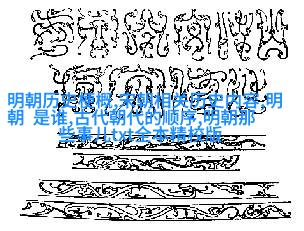 明朝历史梗概,宋朝相关历史内容,明
朝 是谁,古代朝代的顺序,明朝那
些事儿txt全本精校版